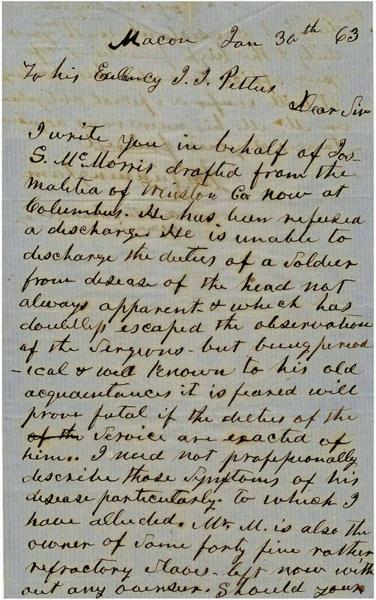 Macon Jan 30th 63
To his Exlency J. J. Pettus
Dear Sir
I write you in behalf of Jos-
S. McMorris drafted from the
malitia of Winston Co now at
Columbus. He has been refused
a discharge. He is unable to
discharge the duties of a Soldier
from disease of the head not
always apparent & which has
doubtless escaped the observation
of the Surgions - but being period
-ical & well known to his old
acquaintances it is feared will
prove fatal if the duties of the
of the Service are exacted of
him. I need not professionally
describe those Symptoms of his
disease particularly to which I
have alluded. Mr. M. is also the
owner of Some forty five rather
refractory Slaves - left now with
out any overseer. Should your